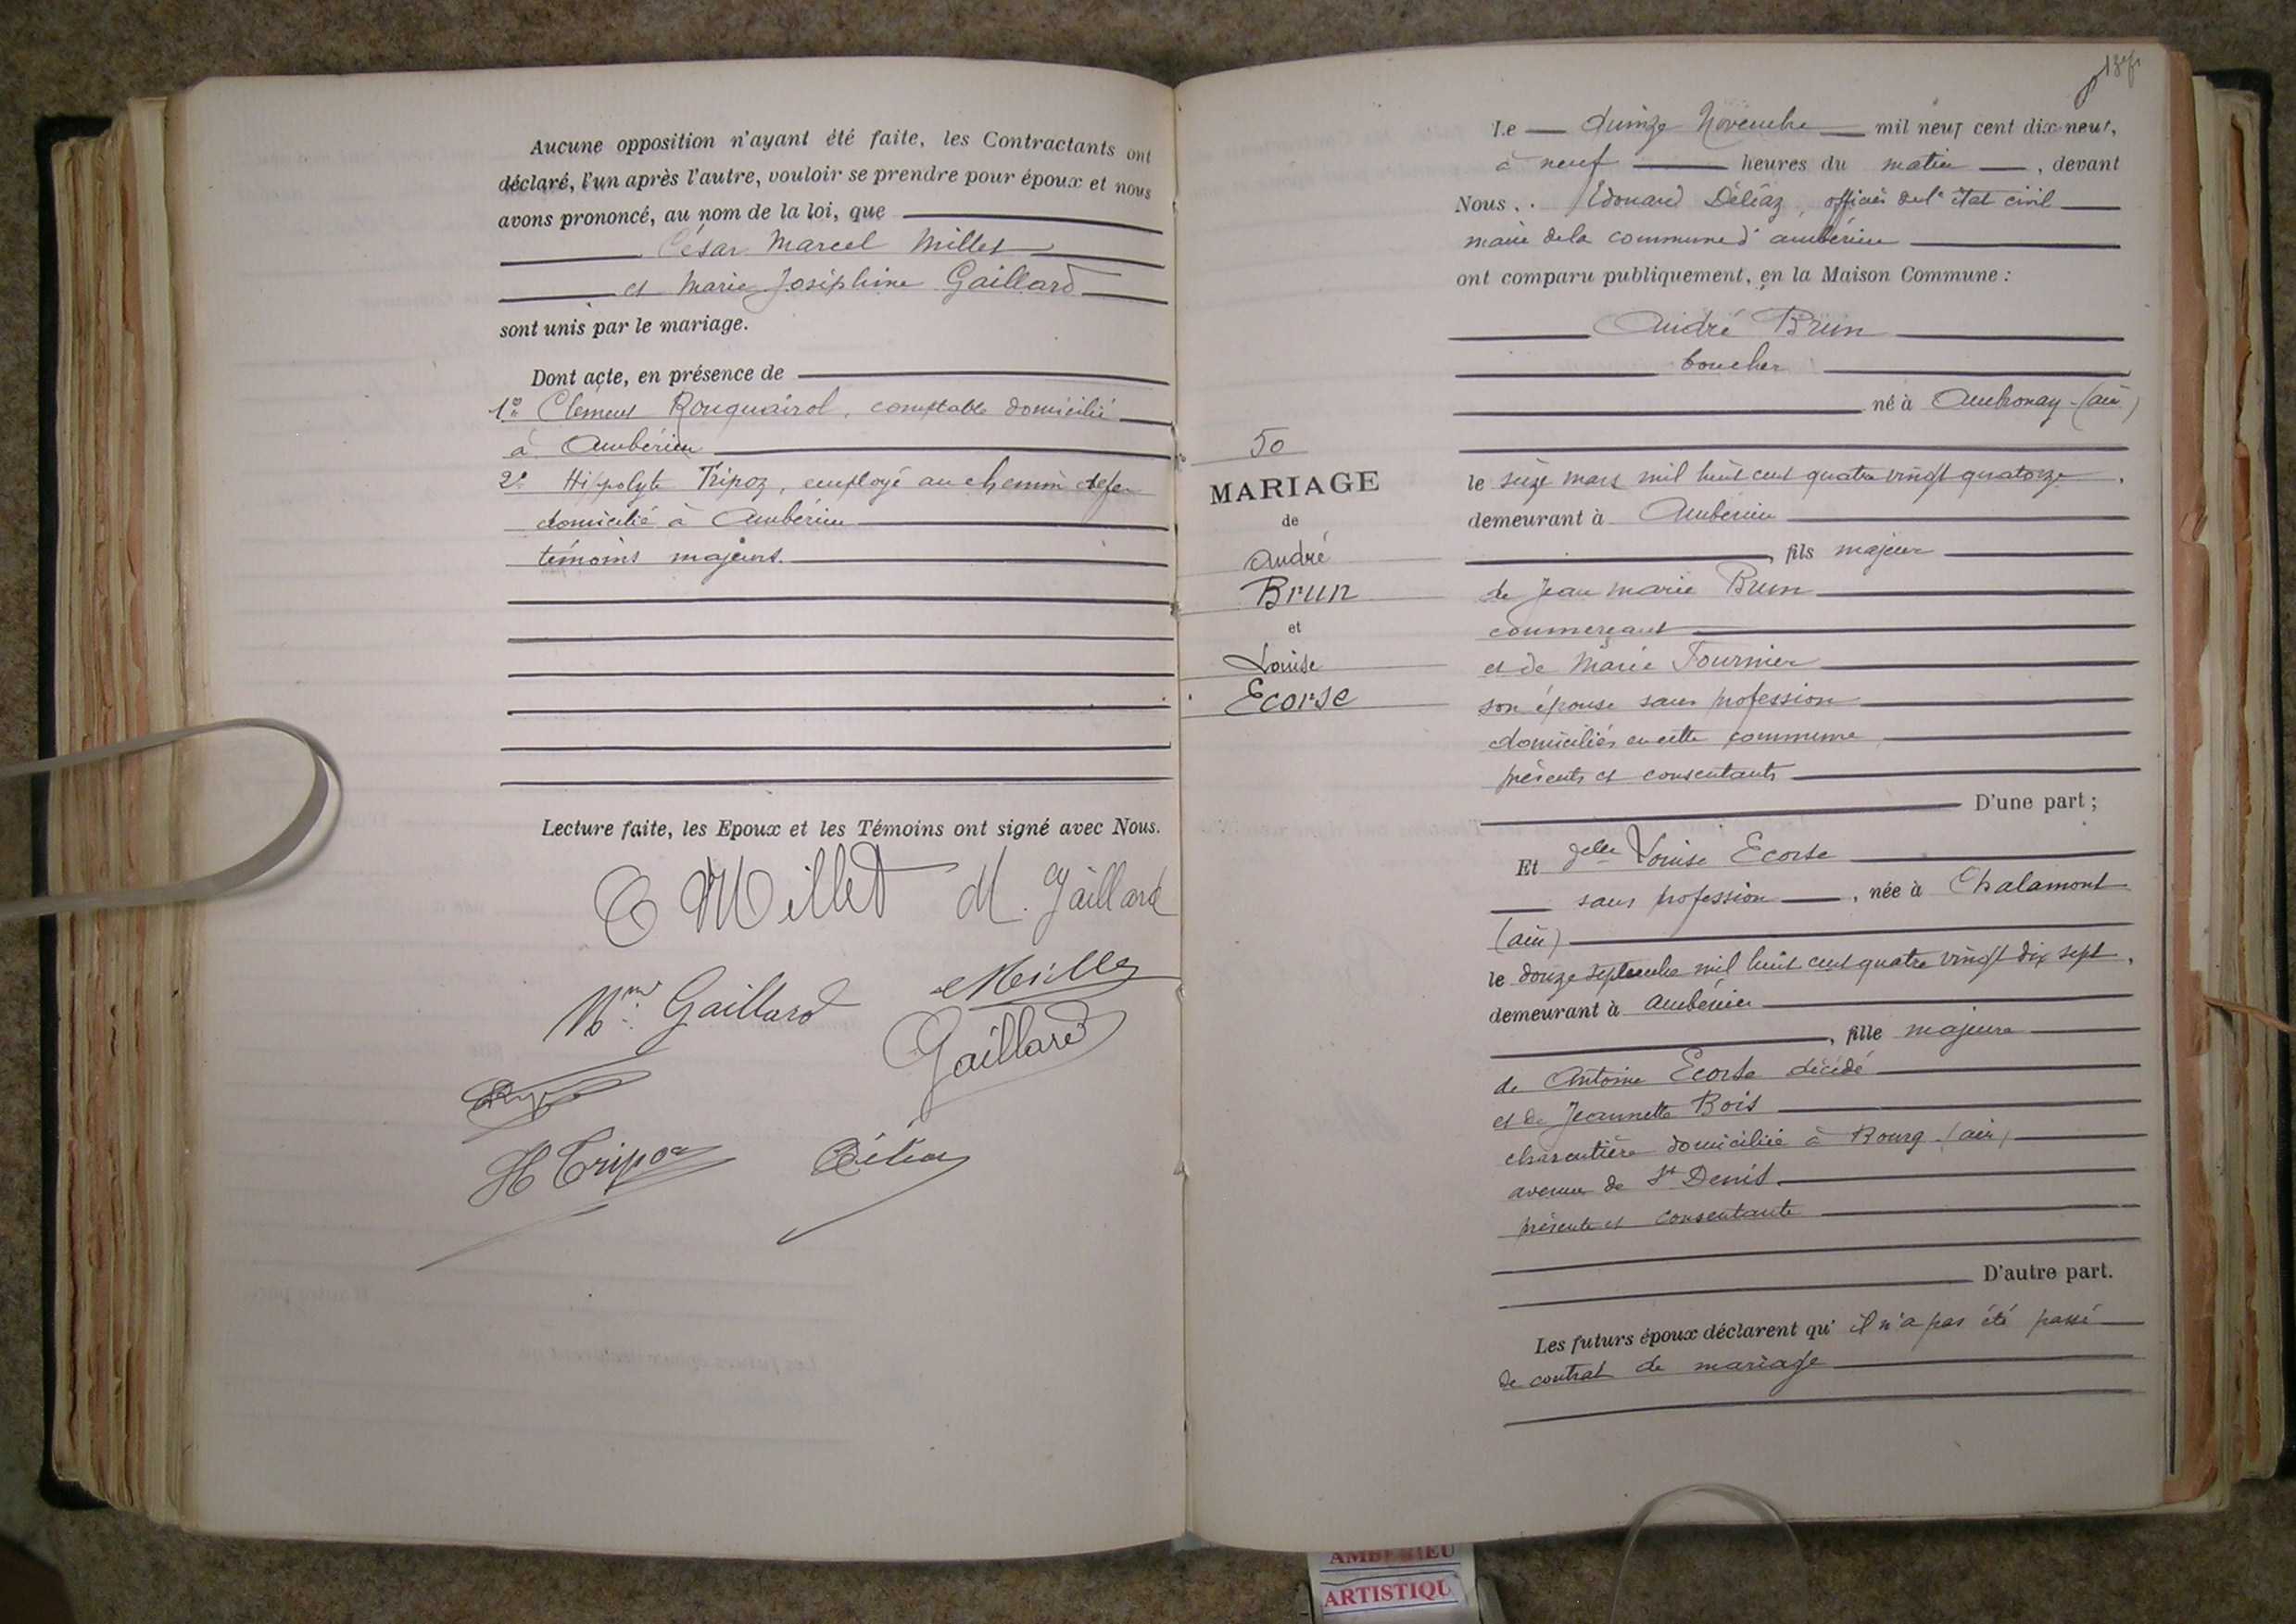 Aucune opposition n'ayant été faite, les Contractants ont
déclaré, l'un après l'autre, vouloir se prendre pour époux et nous
avons prononcé, au nom de la loi, que
César Marcel Millet
et Marie Joséphine Gaillard
sont unis par le mariage.
Dont acte, en présence de
1º Clément Rouquairol, comptable domicilié
à Ambérieu
2º Hipolyte Tripoz, employé au chemin de fer
domicilié à Ambérieu
témoins majeurs.
Lecture faite, les Epoux et les Témoins ont signé avec Nous.
C Millet M. Gaillard
Mme Gaillard
Gaillard
H Tripoz Déléaz
Le quinze Novembre mil neuf cent dix-neuf,
à neuf heures du matin, devant
Nous, Edouard Déléaz, officier de l'état civil
maire de la commune d'ambérieu
ont comparu publiquement, en la Maison Commune :
André Brun
boucher
né à Ambronay (ain)
le seize mars mil huit cent quatre vingt quatorze,
demeurant à Ambérieu
, fils majeur
de Jean marie Brun
commerçant
et de Marie Fournier
son épouse sans profession
domiciliés en cette commune
présents et consentants
D'une part ;
50
MARIAGE
de
André
Brun
et
Louise
Ecorse
Et delle Louise Ecorse
sans profession, née à Chalamont
(ain)
le douze septembre mil huit cent quatre vingt dix sept,
demeurant à ambérieu
, fille majeure
de Antoine Ecorse décédé
et de Jeannette Bois
charcutière domiciliée à Bourg (ain)
avenue de St Denis
présente et consentante
D'autre part.
Les futurs époux déclarent qu'il n'a pas été passé
de contrat de mariage
AMBERIEU
ARTISTIQU